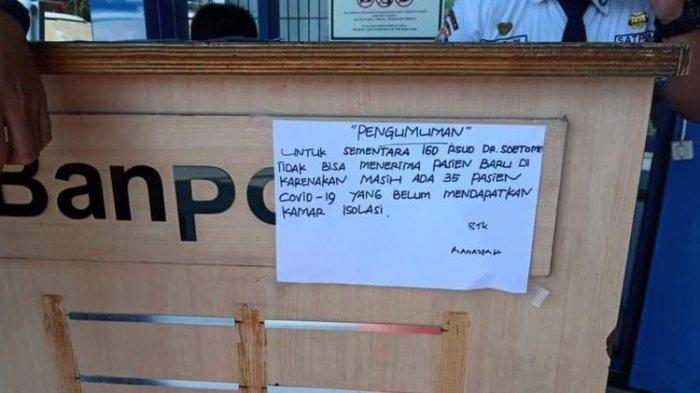 SATPAM
BanPo
"PENGUMUMAN"
UNTUK SEMENTARA IGD RSUD DR. SOETOMO
TIDAK BISA MENERIMA PASIEN BARU DI
KARENAKAN MASIH ADA 35 PASIEN
COVID-19 YANG BELUM MENDAPATKAN
KAMAR ISOLASI.
BTK